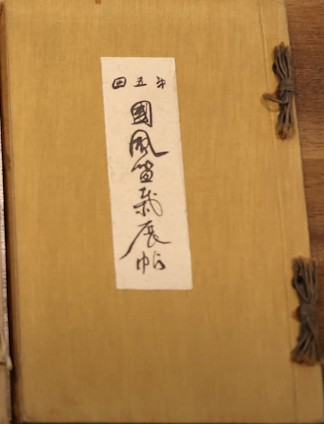 第五回
國風盆栽展帖